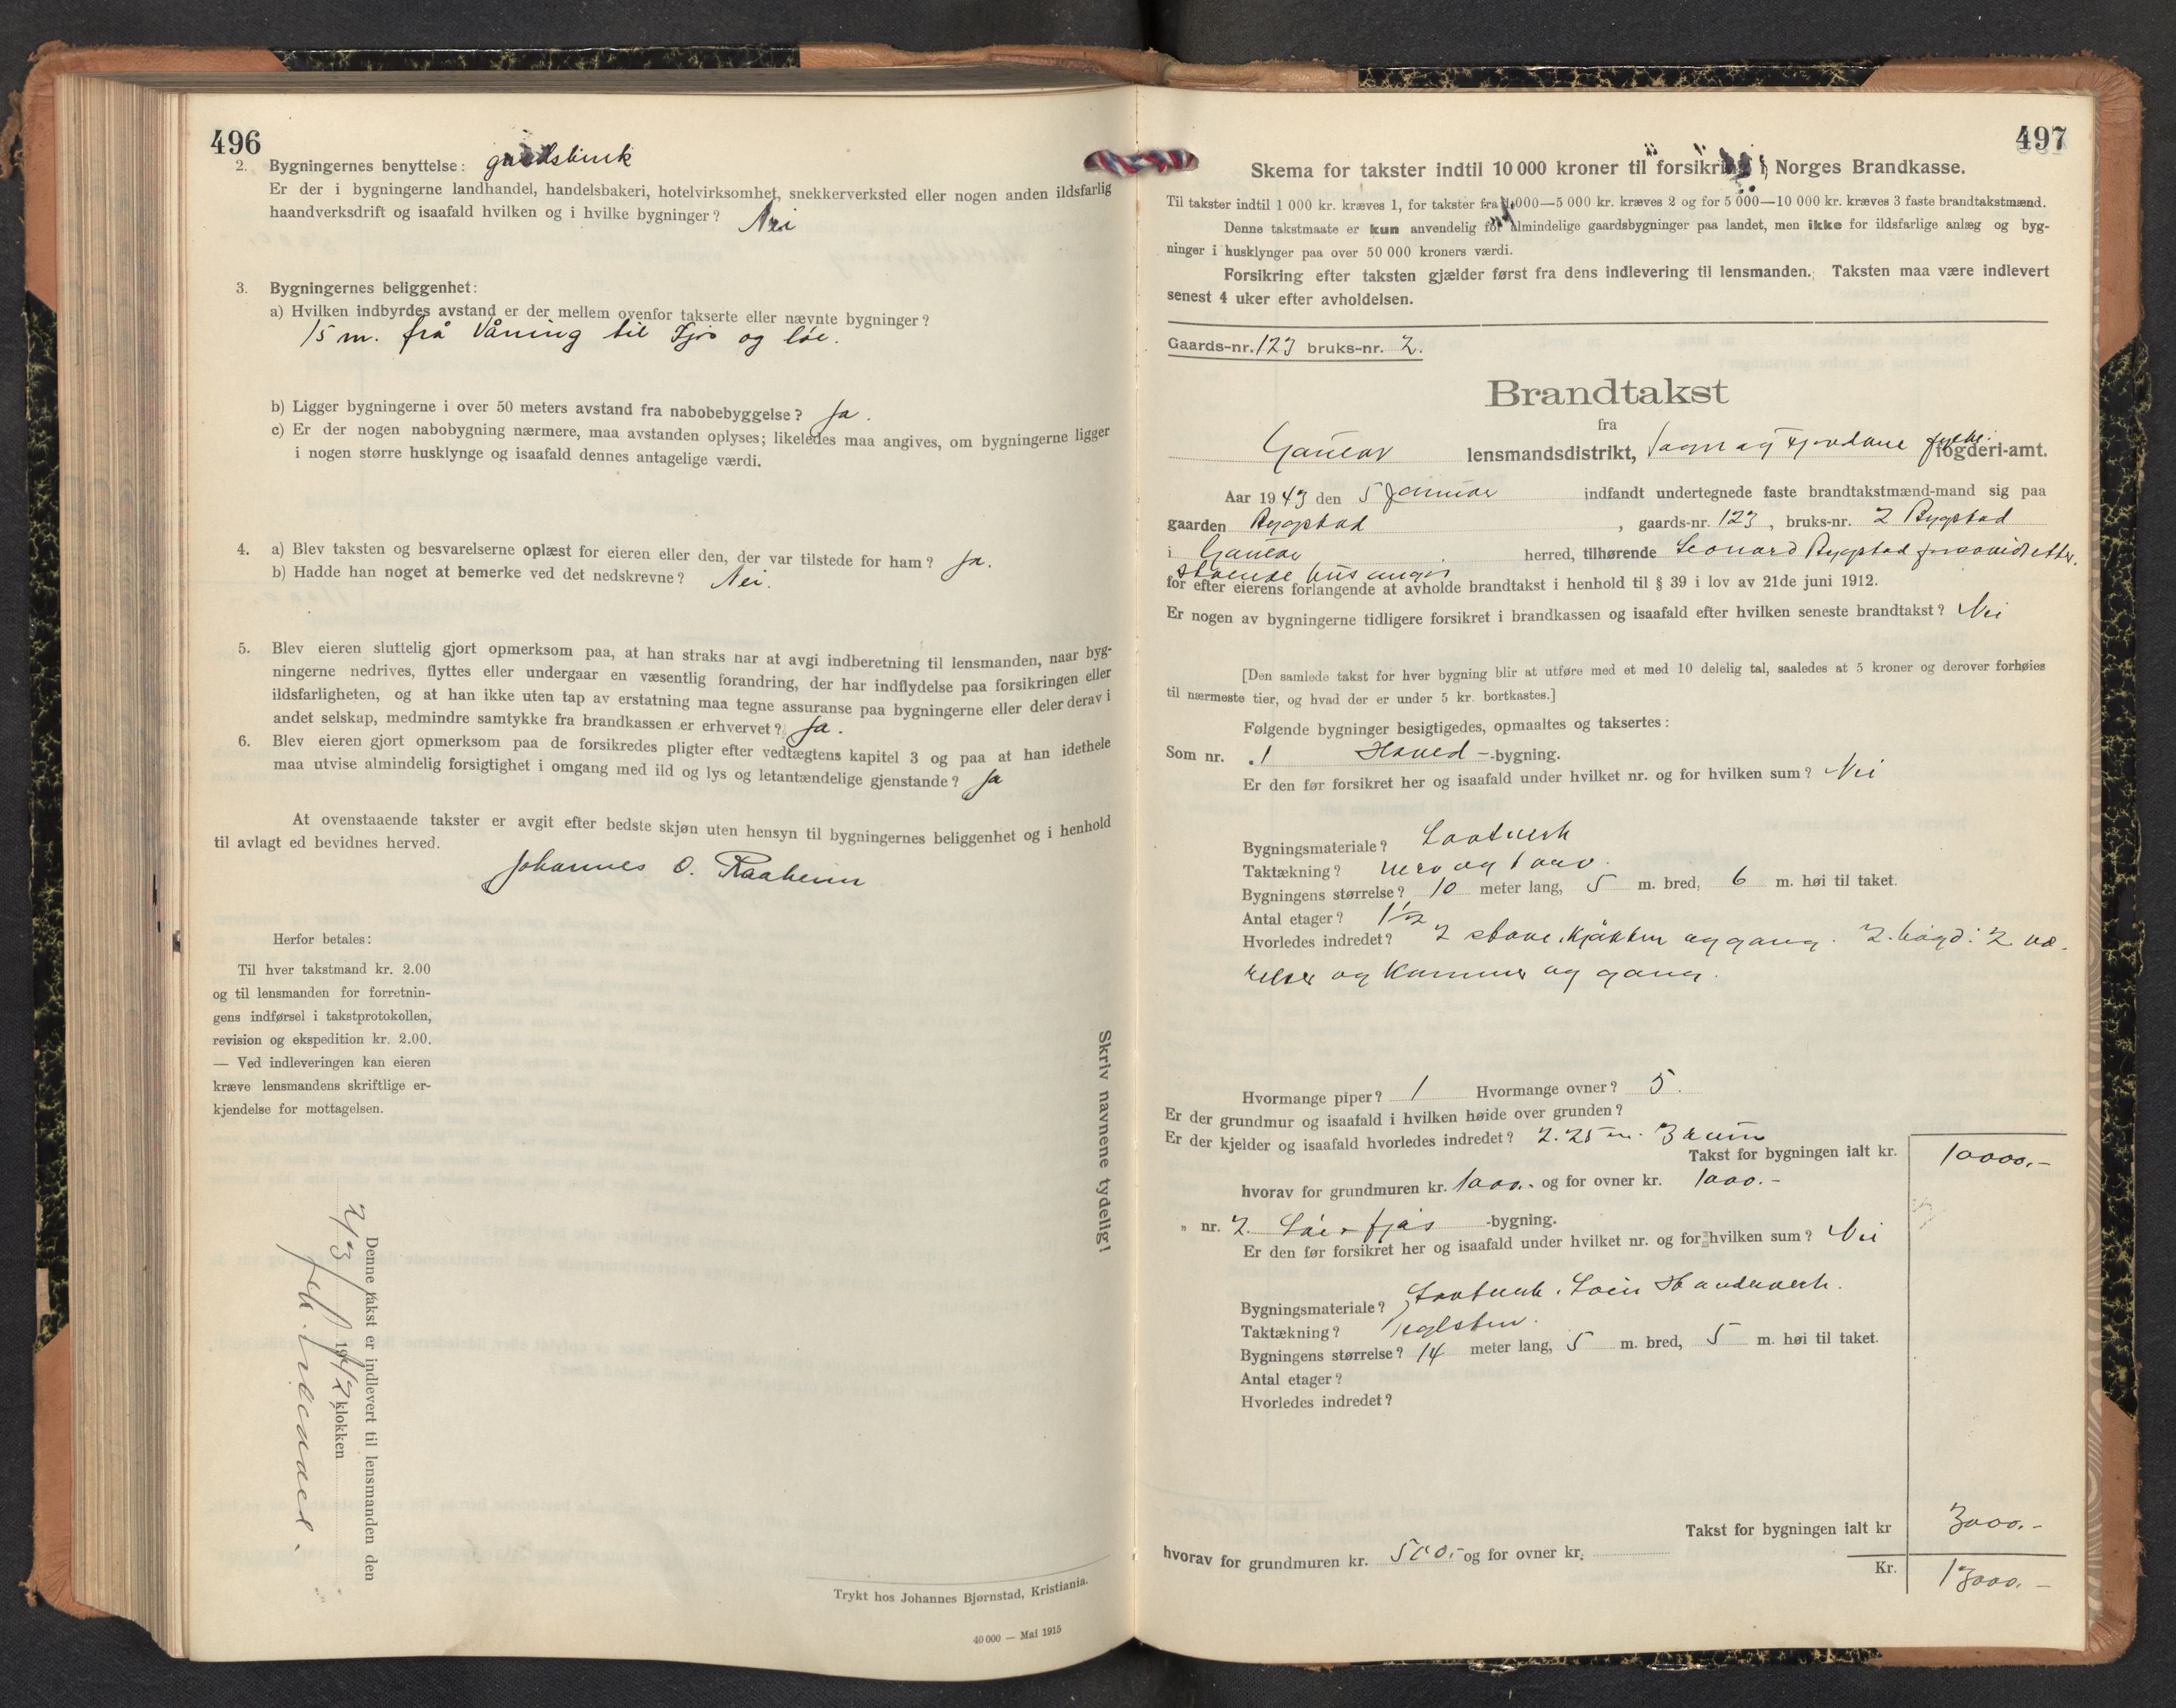 496
2. Bygningernes benyttelse: gardsbruk
Er der i bygningerne landhandel, handelsbakeri, hotelvirksomhet, snekkerverksted eller nogen anden ildsfarlig
haandverksdrift og isaafald hvilken og i hvilke bygninger? Nei
3. Bygningernes beliggenhet:
a) Hvilken indbyrdes avstand er der mellem ovenfor takserte eller nævnte bygninger?
15 m. frå Våning til Fjøs og løe.
b) Ligger bygningerne i over 50 meters avstand fra nabobebyggelse? Ja.
c) Er der nogen nabobygning nærmere, maa avstanden oplyses; likeledes maa angives, om bygningerne ligger
i nogen større husklynge og isaafald dennes antagelige værdi.
4. a) Blev taksten og besvarelserne oplæst for eieren eller den, der var tilstede for ham? Ja.
b) Hadde han noget at bemerke ved det nedskrevne? Nei.
5. Blev eieren sluttelig gjort opmerksom paa, at han straks har at avgi indberetning til lensmanden, naar byg-
ningerne nedrives, flyttes eller undergaar en væsentlig forandring, der har indflydelse paa forsikringen eller
ildsfarligheten, og at han ikke uten tap av erstatning maa tegne assuranse paa bygningerne eller deler derav i
andet selskap, medmindre samtykke fra brandkassen er erhvervet? Ja.
6. Blev eieren gjort opmerksom paa de forsikredes pligter efter vedtægtens kapitel 3 og paa at han idethele
maa utvise almindelig forsigtighet i omgang med ild og lys og letantændelige gjenstande? Ja
At ovenstaaende takster er avgit efter bedste skjøn uten hensyn til bygningernes beliggenhet og i henhold
til avlagt ed bevidnes herved.
Johannes O. Raaheim
Herfor betales:
Til hver takstmand kr. 2.00
og til lensmanden for forretnin-
gens indførsel i takstprotokollen,
revision og ekspedition kr. 2.00.
— Ved indleveringen kan eieren
kræve lensmandens skriftlige er-
kjendelse for mottagelsen.
Skriv navnene tydelig!
Denne takst er indlevert til lensmanden den
klokken
Trykt hos Johannes Bjørnstad, Kristiania.
40 000 — Mai 1915
497
Skema for takster indtil 10 000 kroner til forsikring i Norges Brandkasse.
Til takster indtil 1 000 kr. kræves 1, for takster fra 1 000—5 000 kr. kræves 2 og for 5 000—10 000 kr. kræves 3 faste brandtakstmænd.
Denne takstmaate er kun anvendelig for almindelige gaardsbygninger paa landet, men ikke for ildsfarlige anlæg og byg-
ninger i husklynger paa over 50 000 kroners værdi.
Forsikring efter taksten gjælder først fra dens indlevering til lensmanden. Taksten maa være indlevert
senest 4 uker efter avholdelsen.
Gaards-nr. 123 bruks-nr. 2.
Brandtakst
fra
Gaular lensmandsdistrikt, Sogn og Fjordane fylke. fogderi-amt.
Aar 1943 den 5 Januar indfandt undertegnede faste brandtakstmænd-mand sig paa
gaarden Bygstad, gaards-nr. 123, bruks-nr. 2 Bygstad
i Gaular herred, tilhørende Leonard Bygstad
for efter eierens forlangende at avholde brandtakst i henhold til § 39 i lov av 21de juni 1912.
Er nogen av bygningerne tidligere forsikret i brandkassen og isaafald efter hvilken seneste brandtakst? Nei
[Den samlede takst for hver bygning blir at utføre med et med 10 delelig tal, saaledes at 5 kroner og derover forhøies
til nærmeste tier, og hvad der er under 5 kr. bortkastes.]
Følgende bygninger besigtigedes, opmaaltes og taksertes:
Som nr. 1 Hoved-bygning.
Er den før forsikret her og isaafald under hvilket nr. og for hvilken sum? Nei
Bygningsmateriale? Laftverk
Taktækning?
Bygningens størrelse? 10 meter lang, 5 m. bred, 6 m. høi til taket.
Antal etager? 1 1/2
Hvorledes indredet? 2 stove, kjøkken og gang. 2. høgd: 2 væ-
relser og kammer og gang.
Hvormange piper? 1 Hvormange ovner? 5.
Er der grundmur og isaafald i hvilken høide over grunden?
Er der kjelder og isaafald hvorledes indredet? 2.25 m. 3 rum
Takst for bygningen ialt kr. 10000.-
hvorav for grundmuren kr. 1000.- og for ovner kr. 1000.-
" nr. 2. Løe - fjøs -bygning.
Er den før forsikret her og isaafald under hvilket nr. og for hvilken sum? Nei
Bygningsmateriale? Laftverk.
Taktækning? Teglsten.
Bygningens størrelse? 14 meter lang, 5 m. bred, 5 m. høi til taket.
Antal etager?
Hvorledes indredet?
Takst for bygningen ialt kr 3000.-
hvorav for grundmuren kr. 500.- og for ovner kr.
Kr. 13000.-